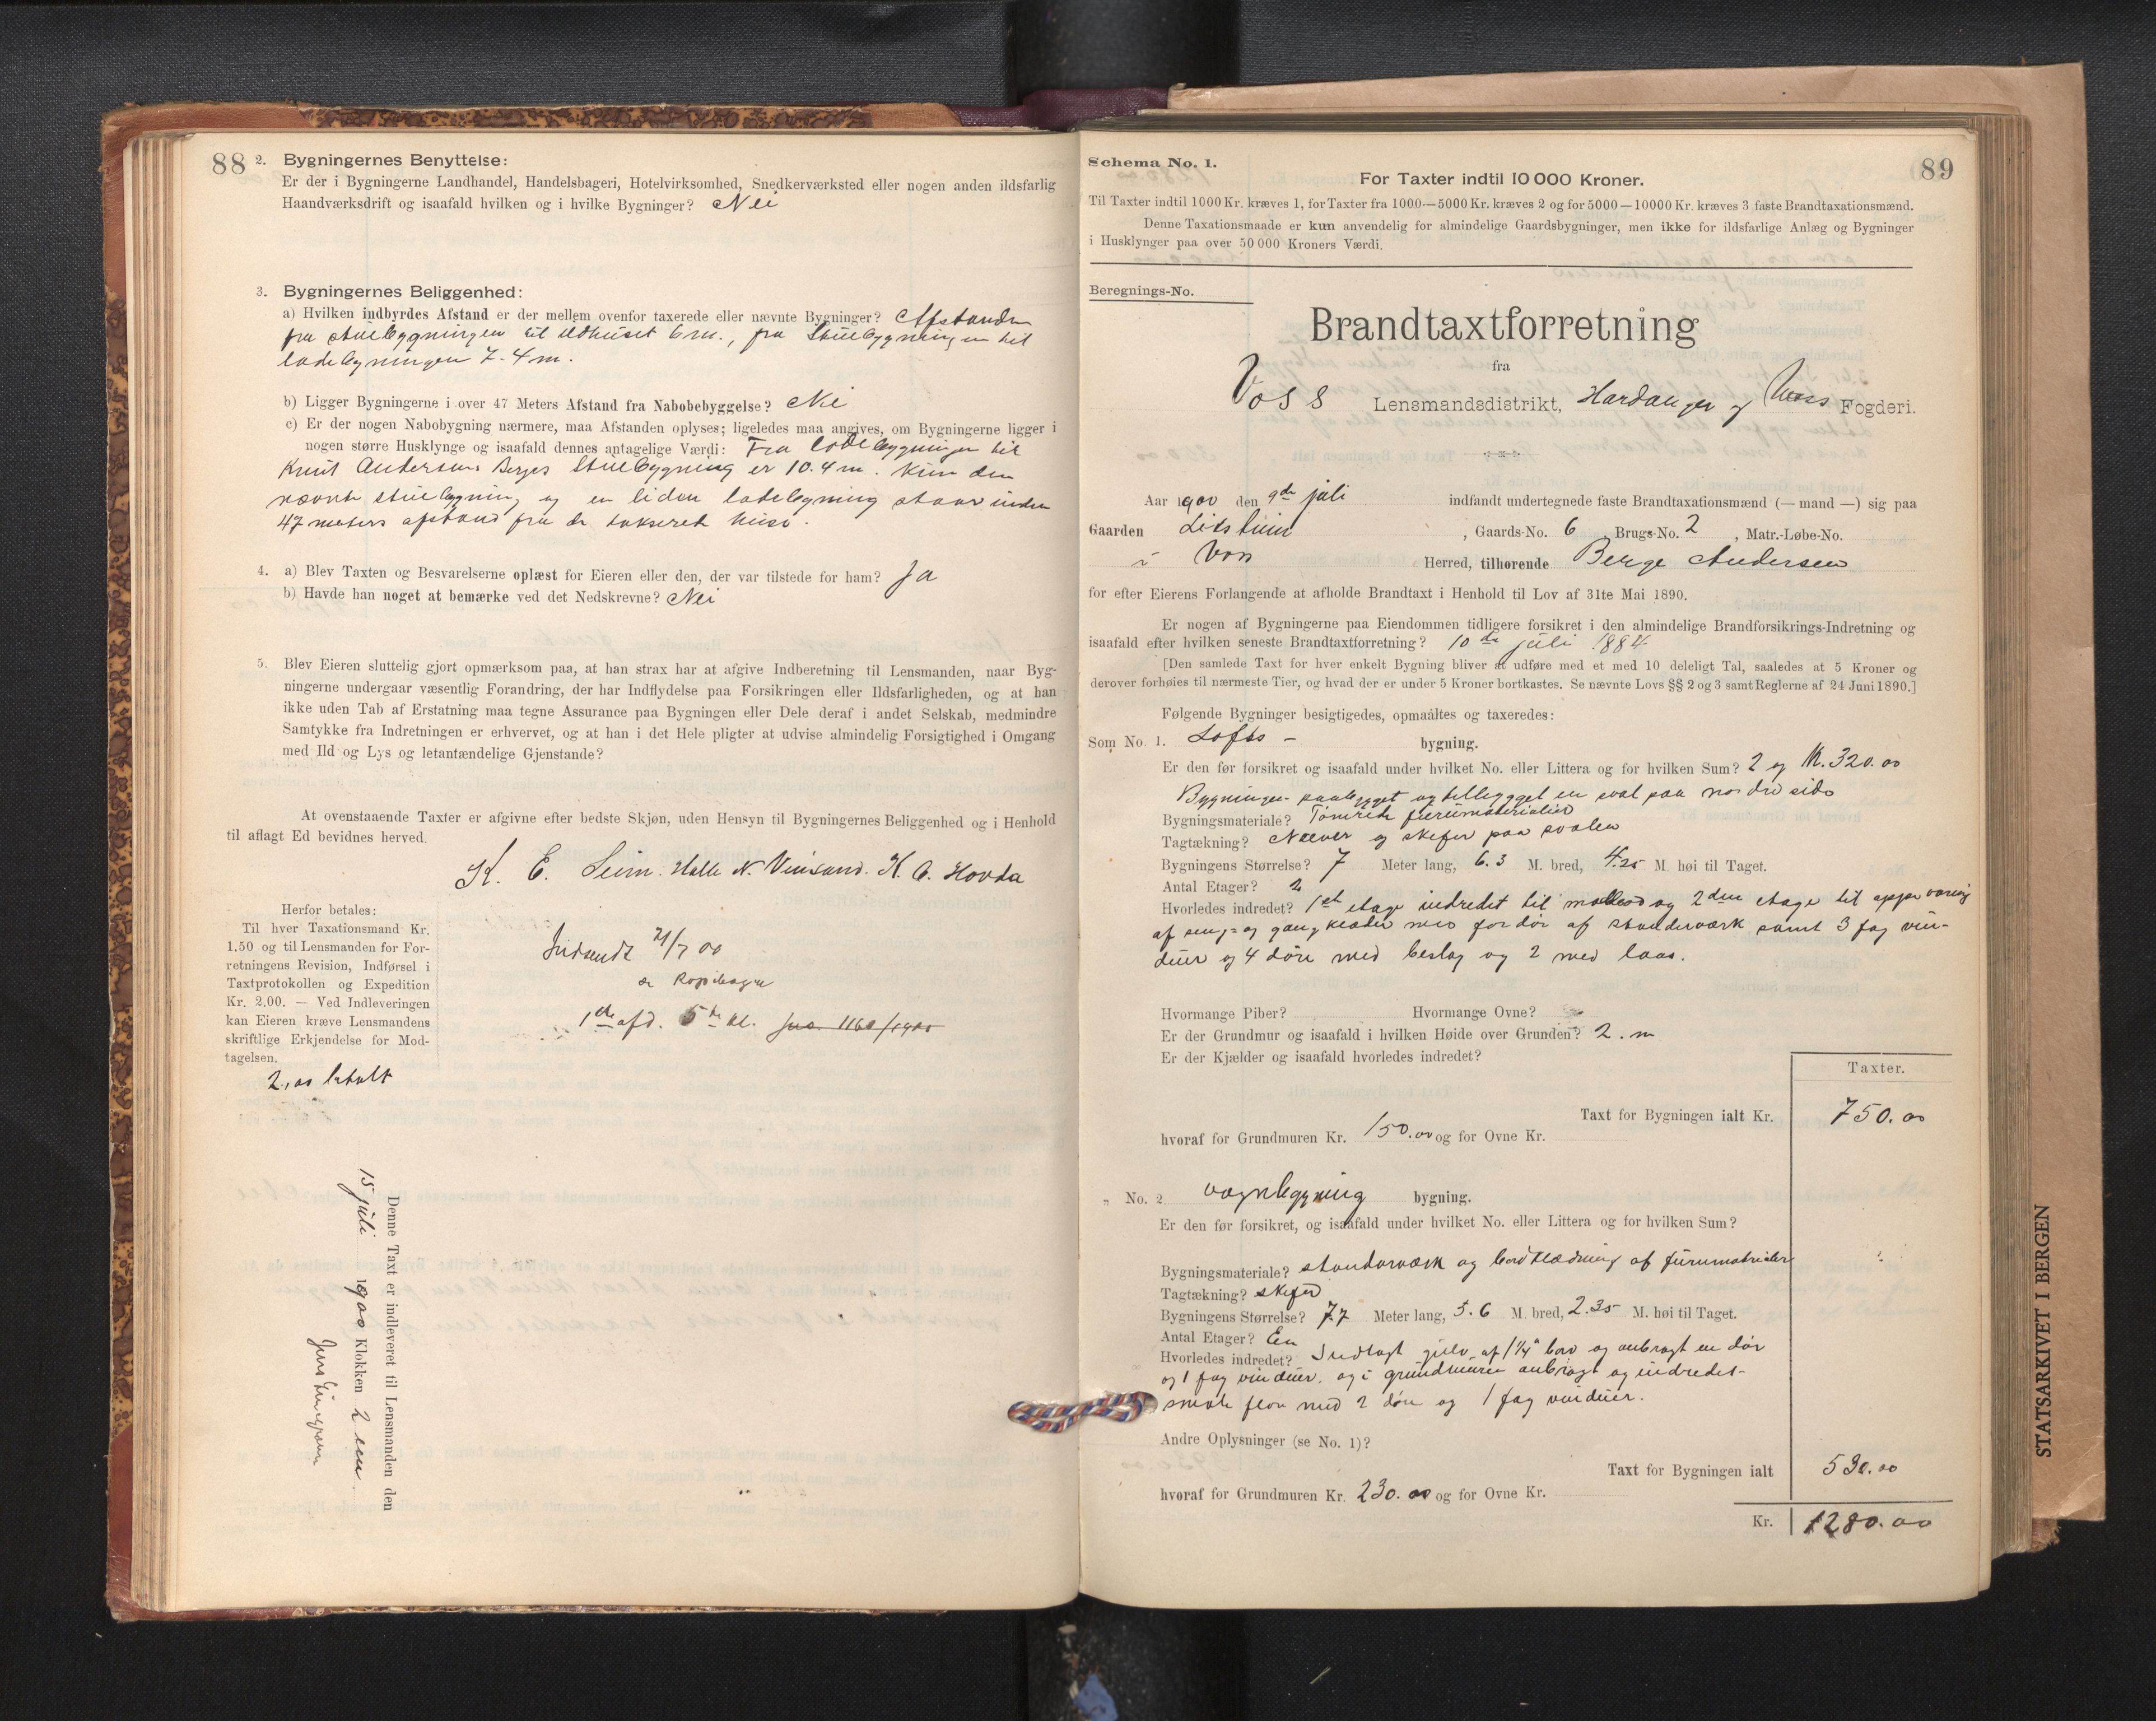 88
2. Bygningernes Benyttelse:
Er der i Bygningerne Landhandel, Handelsbageri, Hotelvirksomhed, Snedkerværksted eller nogen anden ildsfarlig
Haandværksdrift og isaafald hvilken og i hvilke Bygninger? Nei
3. Bygningernes Beliggenhed:
a) Hvilken indbyrdes Afstand er der mellem ovenfor taxerede eller nævnte Bygninger? Afstanden
fra stuebygningen til ildhuset 6 m., fra Stuebygningen til
ladebygningen 7.4 m.
b) Ligger Bygningerne i over 47 Meters Afstand fra Nabobebyggelse? Nei
c) Er der nogen Nabobygning nærmere, maa Afstanden oplyses; ligeledes maa angives, om Bygningerne ligger i
nogen større Husklynge og isaafald dennes antagelige Værdi: Fra ladebygningen til
Knut Andersens Berges Stuebygning er 10.4 m. Kun den
nævnte stuebygning og en liden ladebygning staar inden
47 meters afstand fra de takserte huse.
4. a) Blev Taxten og Besvarelserne oplæst for Eieren eller den, der var tilstede for ham? Ja
b) Havde han noget at bemærke ved det Nedskrevne? Nei
5. Blev Eieren sluttelig gjort opmærksom paa, at han strax har at afgive Indberetning til Lensmanden, naar Byg-
ningerne undergaar væsentlig Forandring, der har Indflydelse paa Forsikringen eller Ildsfarligheden, og at han
ikke uden Tab af Erstatning maa tegne Assurance paa Bygningen eller Dele deraf i andet Selskab, medmindre
Samtykke fra Indretningen er erhvervet, og at han i det Hele pligter at udvise almindelig Forsigtighed i Omgang
med Ild og Lys og letantændelige Gjenstande?
At ovenstaaende Taxter er afgivne efter bedste Skjøn, uden Hensyn til Bygningernes Beliggenhed og i Henhold
til aflagt Ed bevidnes herved.
K. E. Seim. Halle N. Vinsand. K. O. Hovda
Herfor betales:
Til hver Taxationsmand Kr.
1,50 og til Lensmanden for For-
retningens Revision, Indførsel i
Taxtprotokollen og Expedition
Kr. 2.00. — Ved Indleveringen
kan Eieren kræve Lensmandens
skriftlige Erkjendelse for Mod-
tagelsen.
2,00 betalt
Indsendt 21/7 00
se Kopibogen
1ste afd. 5te kl. 1160/1900
Denne Taxt er indleveret til Lensmanden den
15 juli 1900 Klokken 2 em
Schema No. 1.
89
For Taxter indtil 10 000 Kroner.
Til Taxter indtil 1000 Kr. kræves 1, for Taxter fra 1000—5000 Kr. kræves 2 og for 5000—10000 Kr. kræves 3 faste Brandtaxationsmænd.
Denne Taxationsmaade er kun anvendelig for almindelige Gaardsbygninger, men ikke for ildsfarlige Anlæg og Bygninger
i Husklynger paa over 50 000 Kroners Værdi.
Beregnings-No.
Brandtaxtforretning
fra
Voss Lensmandsdistrikt, Hardanger og Voss Fogderi.
Aar 1900 den 9de juli indfandt undertegnede faste Brandtaxationsmænd (— mand —) sig paa
Gaarden , Gaards-No. 6 , Brugs-No. 2 , Matr.-Løbe-No.
i Voss Herred, tilhørende Berge Andersen
for efter Eierens Forlangende at afholde Brandtaxt i Henhold til Lov af 31te Mai 1890.
Er nogen af Bygningerne paa Eiendommen tidligere forsikret i den almindelige Brandforsikrings-Indretning og
isaafald efter hvilken seneste Brandtaxtforretning? 10de juli 1884
[Den samlede Taxt for hver enkelt Bygning bliver at udføre med et med 10 deleligt Tal, saaledes at 5 Kroner og
derover forhøies til nærmeste Tier, og hvad der er under 5 Kroner bortkastes. Se nævnte Lovs §§ 2 og 3 samt Reglerne af 24 Juni 1890.]
Følgende Bygninger besigtigedes, opmaaltes og taxeredes:
Som No. 1. Lofts - bygning.
Er den før forsikret og isaafald under hvilket No. eller Littera og for hvilken Sum? 2 og K. 320.00
Bygningen paabygget og tilbygget en sval paa nordre side
Bygningsmateriale? Tømret furumaterialier
Tagtækning? Næver og skifer paa svalen
Bygningens Størrelse? 7 Meter lang, 6.3 M. bred, 4.25 M. høi til Taget.
Antal Etager? 2
Hvorledes indredet? 1ste etage indredet til madbod og 2den etage til oppevaring
af seng- og gangklæder med fordør af standerværk samt 3 fag vin-
duer og 4 døre med beslag og 2 med laas.
Hvormange Piber? Hvormange Ovne?
Er der Grundmur og isaafald i hvilken Høide over Grunden? 2. m
Er der Kjælder og isaafald hvorledes indredet?
Taxter.
Taxt for Bygningen ialt Kr. 750.00
hvoraf for Grundmuren Kr. 150.00 og for Ovne Kr.
" No. 2 vognbygning bygning.
Er den før forsikret, og isaafald under hvilket No. eller Littera og for hvilken Sum?
Bygningsmateriale? standerværk og bordklædning af furumaterialer
Tagtækning? skifer
Bygningens Størrelse? 7.7 Meter lang, 5.6 M. bred, 2.35 M. høi til Taget.
Antal Etager? En
Hvorledes indredet? Indlagt gulv af 1 1/4" bord og anbragt en dør
og 1 fag vinduer, og i grundmuren anbragt og indredet
smale flor med 2 døre og 1 fag vinduer.
Andre Oplysninger (se No. 1)?
Taxt for Bygningen ialt 530.00
hvoraf for Grundmuren Kr. 230.00 og for Ovne Kr.
Kr. 1280.00
STATSARKIVET I BERGEN